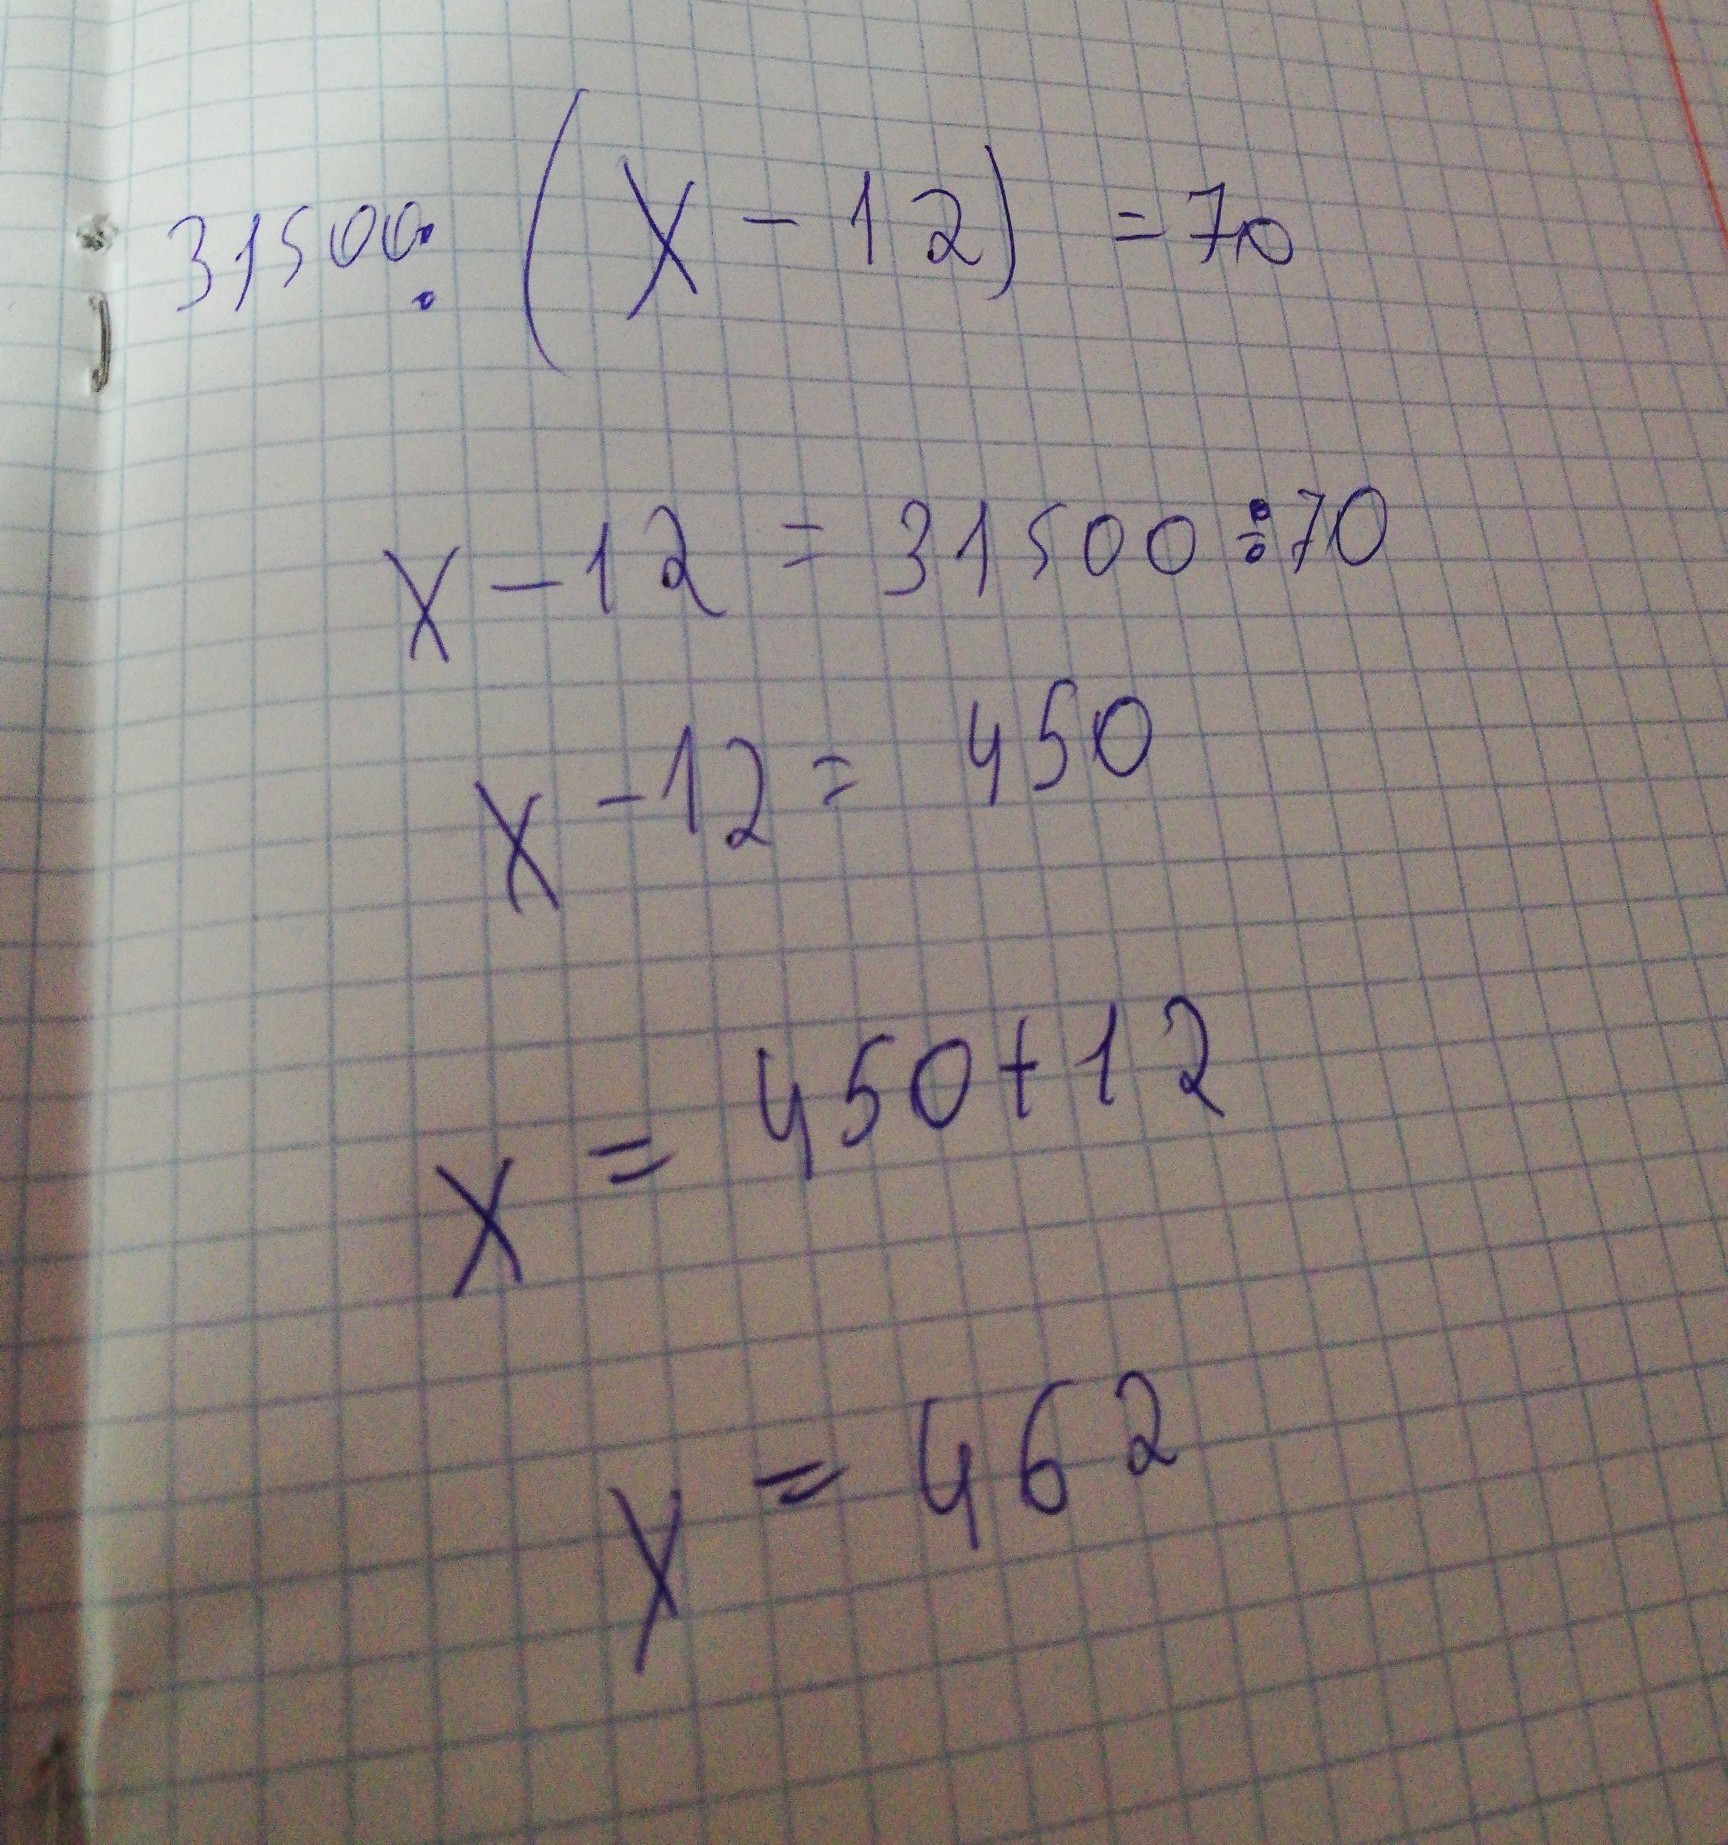 31500 : (x - 12) = 70
x - 12 = 31500 : 70
x - 12 = 450
x = 450 + 12
x = 462